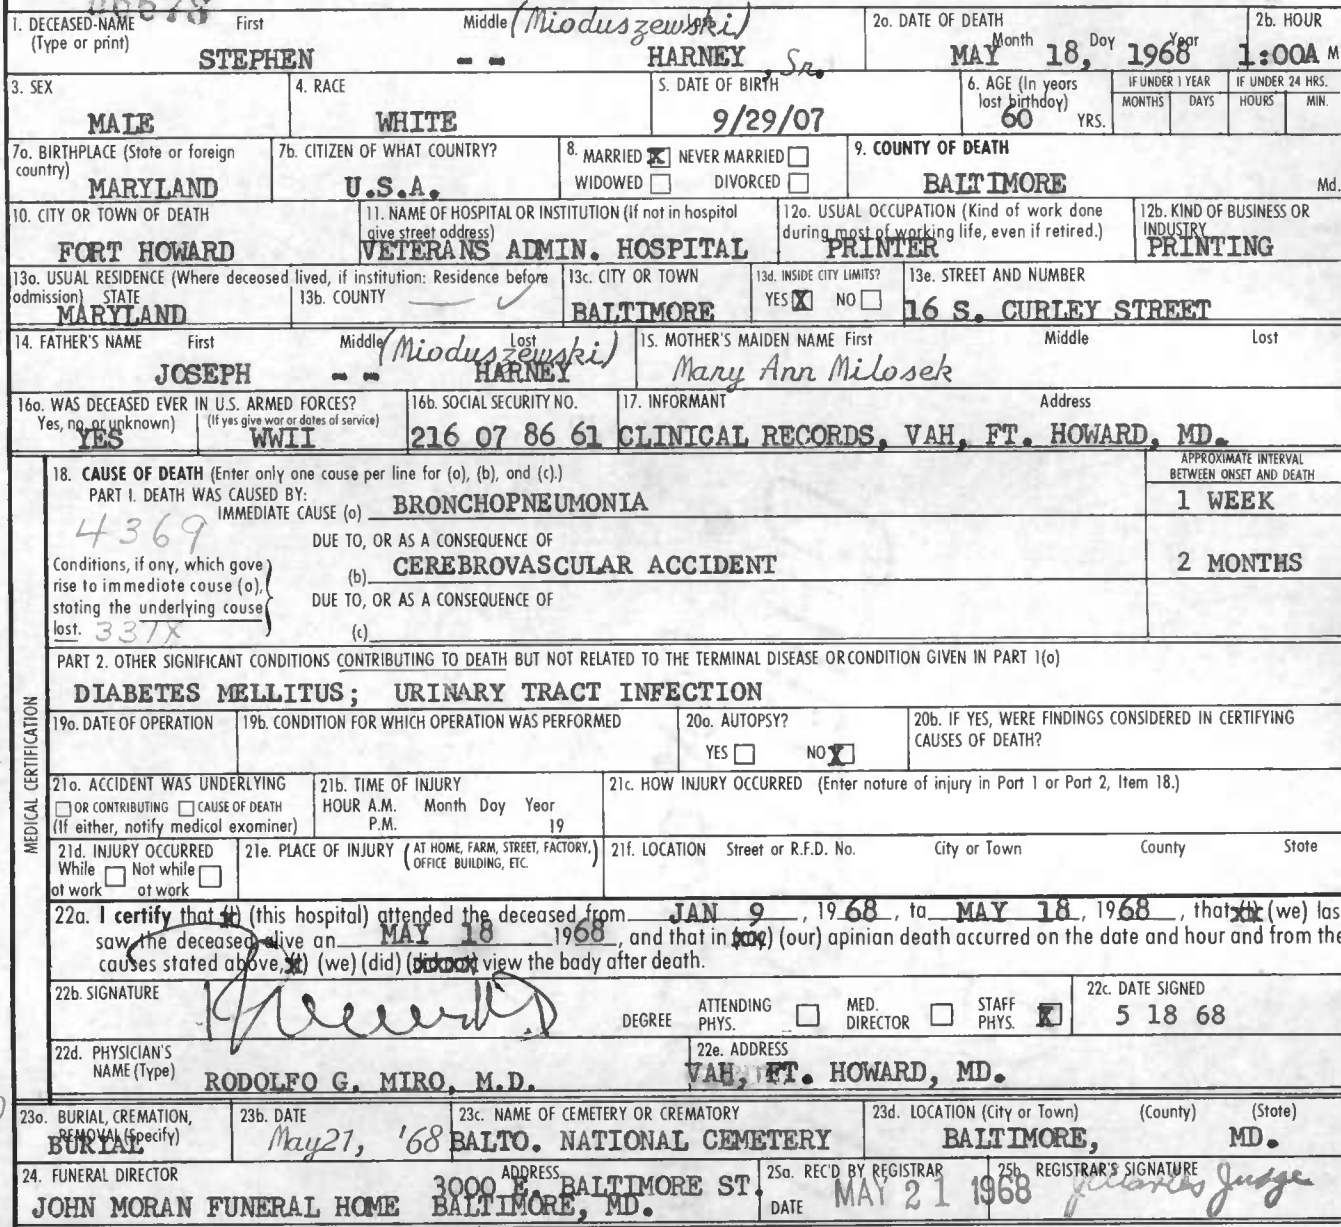 1. DECEASED-NAME (Type or print) First Middle Last
STEPHEN -- HARNEY, Sr. (Mioduszewski)
2a. DATE OF DEATH Month Day Year
MAY 18, 1968
2b. HOUR
1:00A M
3. SEX
MALE
4. RACE
WHITE
5. DATE OF BIRTH
9/29/07
6. AGE (In years last birthday)
60 YRS.
IF UNDER 1 YEAR MONTHS DAYS
IF UNDER 24 HRS. HOURS MIN.
7a. BIRTHPLACE (State or foreign country)
MARYLAND
7b. CITIZEN OF WHAT COUNTRY?
U.S.A.
8. MARRIED X NEVER MARRIED
WIDOWED DIVORCED
9. COUNTY OF DEATH
BALTIMORE Md.
10. CITY OR TOWN OF DEATH
FORT HOWARD
11. NAME OF HOSPITAL OR INSTITUTION (If not in hospital give street address)
VETERANS ADMIN. HOSPITAL
12a. USUAL OCCUPATION (Kind of work done during most of working life, even if retired.)
PRINTER
12b. KIND OF BUSINESS OR INDUSTRY
PRINTING
13a. USUAL RESIDENCE (Where deceased lived, if institution: Residence before admission) STATE
MARYLAND
13b. COUNTY
13c. CITY OR TOWN
BALTIMORE
13d. INSIDE CITY LIMITS?
YES X NO
13e. STREET AND NUMBER
16 S. CURLEY STREET
14. FATHER'S NAME First Middle Last
JOSEPH -- HARNEY (Mioduszewski)
15. MOTHER'S MAIDEN NAME First Middle Last
Mary Ann Milosek
16a. WAS DECEASED EVER IN U.S. ARMED FORCES?
Yes, no, or unknown) (If yes give war or dates of service)
YES WWII
16b. SOCIAL SECURITY NO.
216 07 86 61
17. INFORMANT Address
CLINICAL RECORDS, VAH, FT. HOWARD, MD.
MEDICAL CERTIFICATION
18. CAUSE OF DEATH (Enter only one cause per line for (a), (b), and (c).)
APPROXIMATE INTERVAL BETWEEN ONSET AND DEATH
PART I. DEATH WAS CAUSED BY:
IMMEDIATE CAUSE (a) BRONCHOPNEUMONIA 1 WEEK
4369
DUE TO, OR AS A CONSEQUENCE OF
Conditions, if any, which gave rise to immediate cause (a), stating the underlying cause last. 337X
(b) CEREBROVASCULAR ACCIDENT 2 MONTHS
DUE TO, OR AS A CONSEQUENCE OF
(c)
PART 2. OTHER SIGNIFICANT CONDITIONS CONTRIBUTING TO DEATH BUT NOT RELATED TO THE TERMINAL DISEASE OR CONDITION GIVEN IN PART 1(a)
DIABETES MELLITUS; URINARY TRACT INFECTION
19a. DATE OF OPERATION
19b. CONDITION FOR WHICH OPERATION WAS PERFORMED
20a. AUTOPSY?
YES NO X
20b. IF YES, WERE FINDINGS CONSIDERED IN CERTIFYING CAUSES OF DEATH?
21a. ACCIDENT WAS UNDERLYING
OR CONTRIBUTING CAUSE OF DEATH
(If either, notify medical examiner)
21b. TIME OF INJURY
HOUR A.M. Month Day Year
P.M. 19
21c. HOW INJURY OCCURRED (Enter nature of injury in Part 1 or Part 2, Item 18.)
21d. INJURY OCCURRED
While at work Not while at work
21e. PLACE OF INJURY (AT HOME, FARM, STREET, FACTORY, OFFICE BUILDING, ETC.)
21f. LOCATION Street or R.F.D. No. City or Town County State
22a. I certify that (this hospital) attended the deceased from JAN 9, 1968, to MAY 18, 1968, that (we) las
saw the deceased alive an MAY 18 1968, and that in (our) apinian death accurred on the date and hour and from the
causes stated above, (we) (did) view the bady after death.
22b. SIGNATURE
DEGREE
ATTENDING PHYS. MED. DIRECTOR STAFF PHYS. X
22c. DATE SIGNED
5 18 68
22d. PHYSICIAN'S NAME (Type)
RODOLFO G. MIRO, M.D.
22e. ADDRESS
VAH, FT. HOWARD, MD.
23a. BURIAL, CREMATION, REMOVAL (Specify)
BURIAL
23b. DATE
May 21, '68
23c. NAME OF CEMETERY OR CREMATORY
BALTO. NATIONAL CEMETERY
23d. LOCATION (City or Town) (County) (State)
BALTIMORE, MD.
24. FUNERAL DIRECTOR
JOHN MORAN FUNERAL HOME
ADDRESS
3000 E. BALTIMORE ST.
BALTIMORE, MD.
25a. REC'D BY REGISTRAR
DATE MAY 21 1968
25b. REGISTRAR'S SIGNATURE
Charles Judge